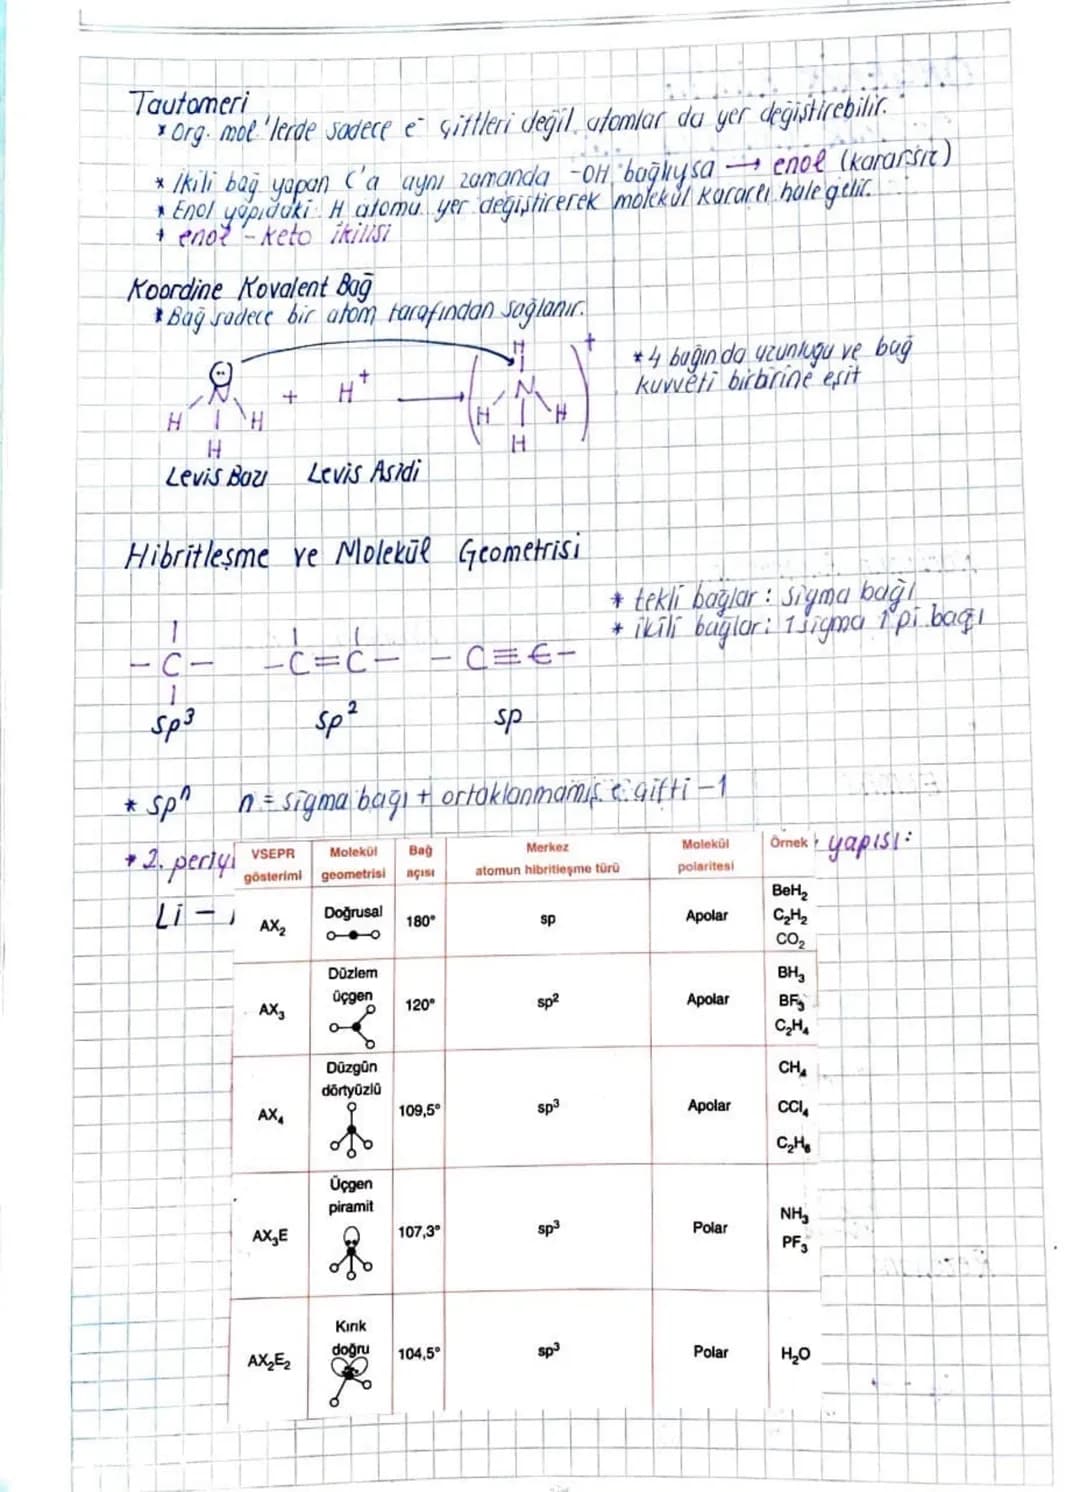 Tautomeri
* Org. mol.'lerde sadece e⁻ çiftleri değil atomlar da yer değiştirebilir.
* İkili bağ yapan C'a aynı zamanda -OH bağlıysa → enol (kararsız)
* Enol yapıdaki H atomu yer değiştirerek molekül kararlı hale gelir.
* enol - keto ikilisi
Koordine Kovalent Bağ
* Bağ sadece bir atom tarafından sağlanır.
* 4 bağında uzunluğu ve bağ
kuvveti birbirine eşit
H
N + H⁺ → N +
H H H H
H H
Levis Bazı Levis Asidi
Hibritleşme ve Molekül Geometrisi
* tekli bağlar: sigma bağı
* ikili bağlar: 1 sigma 1 pi bağı
-C- -C=C- -C≡C-
sp³ sp² sp
* spⁿ n = sigma bağı + ortaklanmamış e⁻ çifti -1
* 2. periy yapısı:
Li -
VSEPR gösterimi Molekül geometrisi Bağ açısı Merkez atomun hibritleşme türü Molekül polaritesi Örnek
AX₂ Doğrusal 180° sp Apolar BeH₂ C₂H₂ CO₂
AX₃ Düzlem üçgen 120° sp² Apolar BH₃ BF₃ C₂H₄
AX₄ Düzgün dörtyüzlü 109,5° sp³ Apolar CH₄ CCl₄ C₂H₆
AX₃E Üçgen piramit 107,3° sp³ Polar NH₃ PF₃
AX₂E₂ Kırık doğru 104,5° sp³ Polar H₂O